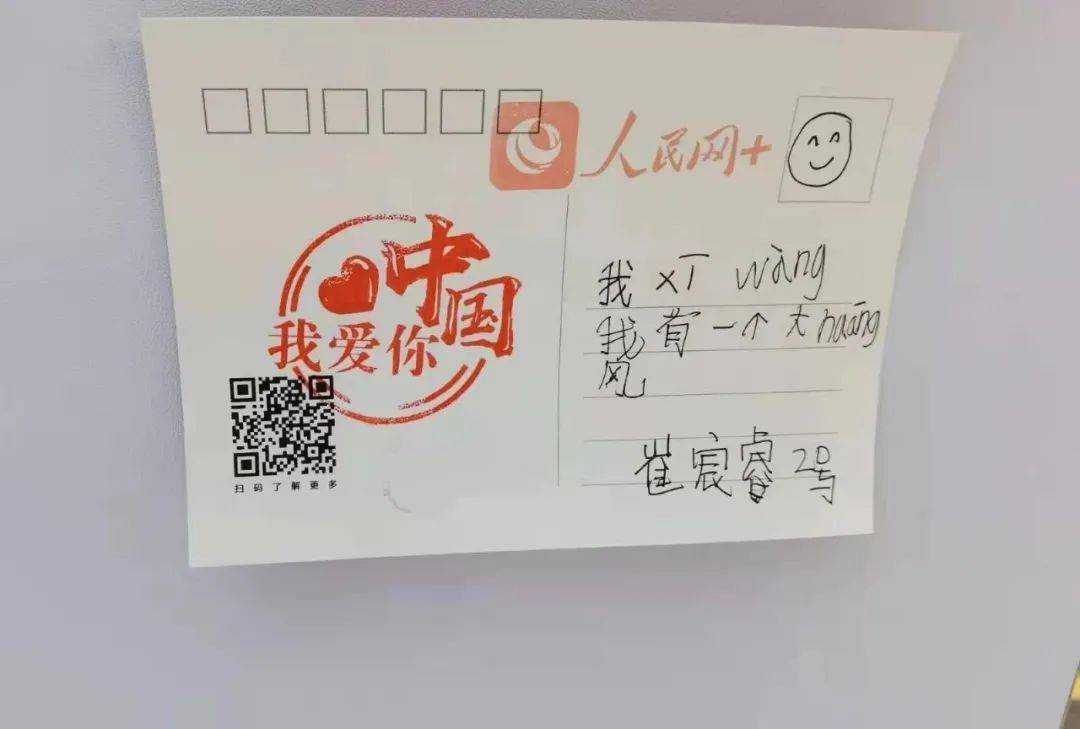 人民网+
中国
我爱你
扫码了解更多
我 xī wàng
我有一个大 huāng
风
崔宸睿 20号